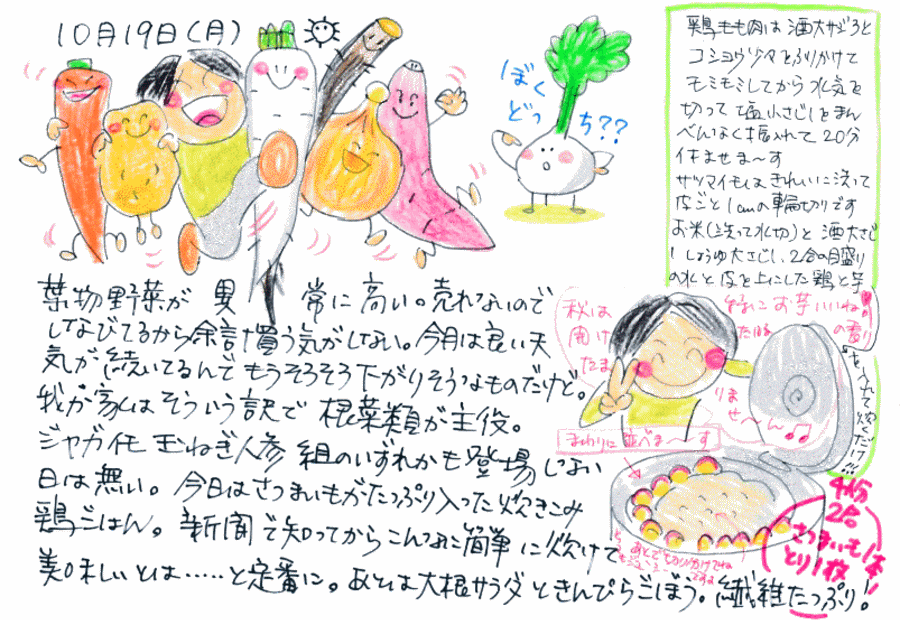 10月19日(月)
ぼく
どっ
ち??
鶏もも肉は酒大サジ2と
コショウ少々とふりかけて
モミモミしてから水気を
切って塩小さじ1をまん
べんなく振入れて20分
休ませま〜す
サツマイモはきれいに洗って
皮ごと1cmの輪切りです
お米(洗って水切)と酒大さじ
1しょうゆ大さじ1、2合の目盛り
の水と皮を上にした鶏と芋
を入れて炊くだけ!!!
葉物野菜が異常に高い。売れないので
しなびてるから余計買う気がしない。今月は良い天
気が続いてるんでもうそろそろ下がりそうなものだけど。
我が家はそういう訳で根菜類が主役。
ジャガイモ玉ねぎ人参組のいずれかも登場しない
日は無い。今日はさつまいもがたっぷり入った炊きこみ
鶏ごはん。新聞で知ってからこんなに簡単に炊けて
美味しいとは……と定番に。あとは大根サラダときんぴらごぼう。繊維たっぷり!
秋は
お芋いいね!
の香り
開け
たま
りま
せ〜ん
まわりに並べま〜す
あとで切り分けてね
4人分
2合
さつまいも1本
とり1枚